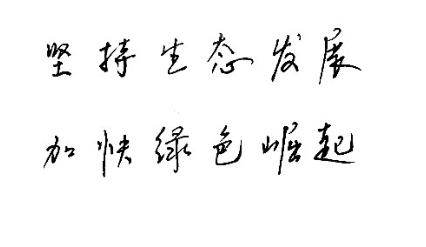 坚持生态发展
加快绿色崛起